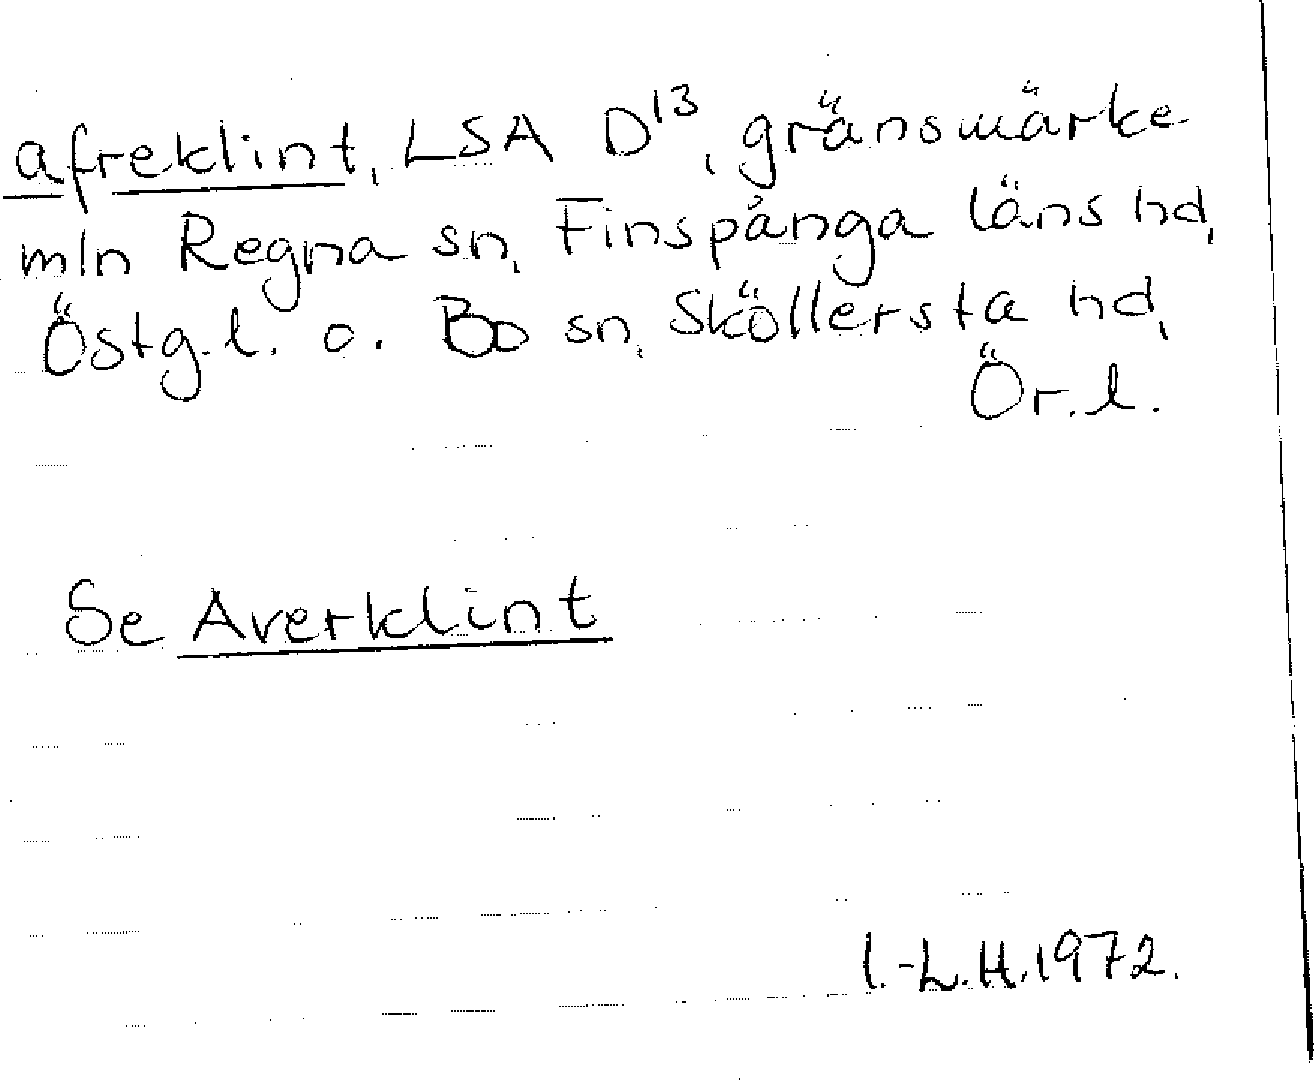 afreklint, LSA D¹³, gränsmärke
mln Regna sn, Finspånga läns hd,
Östg.l. o. Bo sn, Sköllersta hd,
Ör.l.
Se Averklint
I.-L.H.1972.